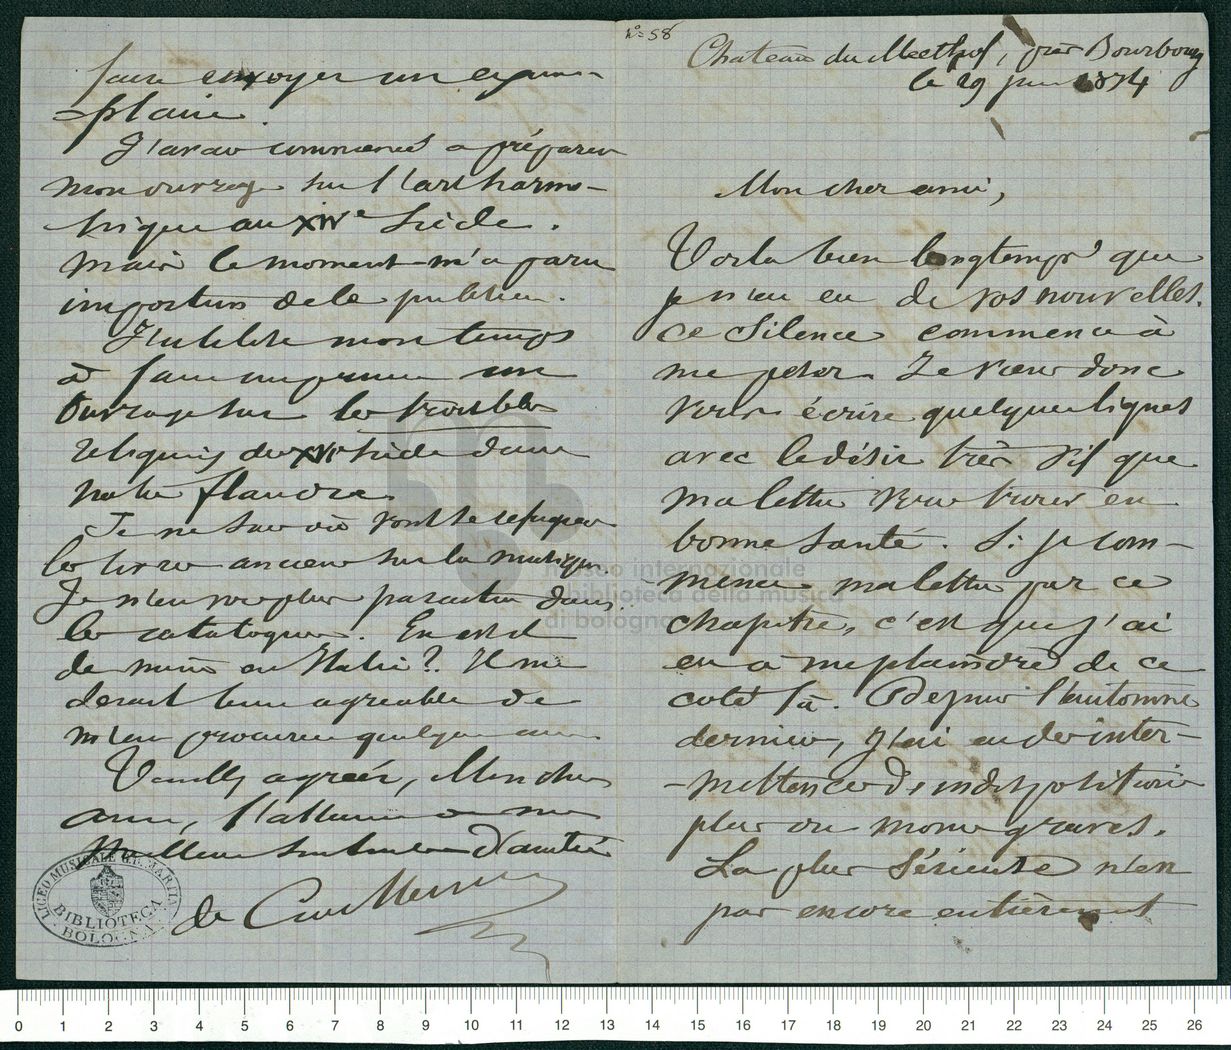 n° 58
Chateau du Meethof, près Bourbourg
le 29 juin 1874
Mon cher ami,
Voila bien longtemps que
je n'ai eu de vos nouvelles.
ce silence commence à
me peser. Je viens donc
vous écrire quelques lignes
avec le désir très vif que
ma lettre vous trouve en
bonne santé. Si je com-
mence ma lettre par ce
chapitre, c'est que j'ai
eu à me plaindre de ce
coté là. Depuis l'automne
dernier, j'ai eu des inter-
-mittences d'indispositions
plus ou moins graves.
La plus sérieuse n'est
pas encore entièrement
faire envoyer un exem-
plaire.
J'avais commencé a préparer
mon ouvrage sur l'art harmo-
nique au XIVe siècle.
mais le moment m'a paru
inopportun de le publier.
J'utilise mon temps
à faire imprimer un
ouvrage sur les troubles
religieux du XVIe siècle dans
notre flandre.
Je ne sais où vont se refugier
les livres anciens sur la musique
Je n'en vois plus paraitre dans
les catalogues. En est il
de même en Italie? Il me
serait bien agréable de
m'en procurer quelques uns.
Veuillez agréer, Mon cher
ami, l'assurance de mes
meilleurs sentimens d'amitié
de Coussemaker
LICEO MUSICALE G.B. MARTINI
BIBLIOTECA
BOLOGNA
museo internazionale
e biblioteca della musica
di bologna
0 1 2 3 4 5 6 7 8 9 10 11 12 13 14 15 16 17 18 19 20 21 22 23 24 25 26